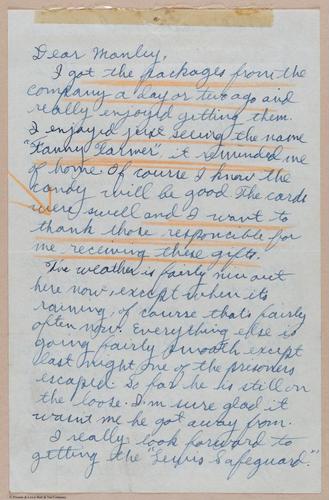 Dear Manley,
I got the packages from the
company a day or two ago and
really enjoyed getting them.
I enjoyed just seeing the name
"Fanny Farmer", it reminded me
of home. Of course I know the
candy will be good. The cards
were swell and I want to
thank those responsible for
me receiving these gifts.
The weather is fairly nice out
here now, except when its
raining, of course that's fairly
often now. Everything else is
going fairly smooth except
last night one of the prisoners
escaped. So far he is still on
the loose. I'm sure glad it
wasnt me he got away from.
I really look forward to
getting the "Lewis Safeguard."